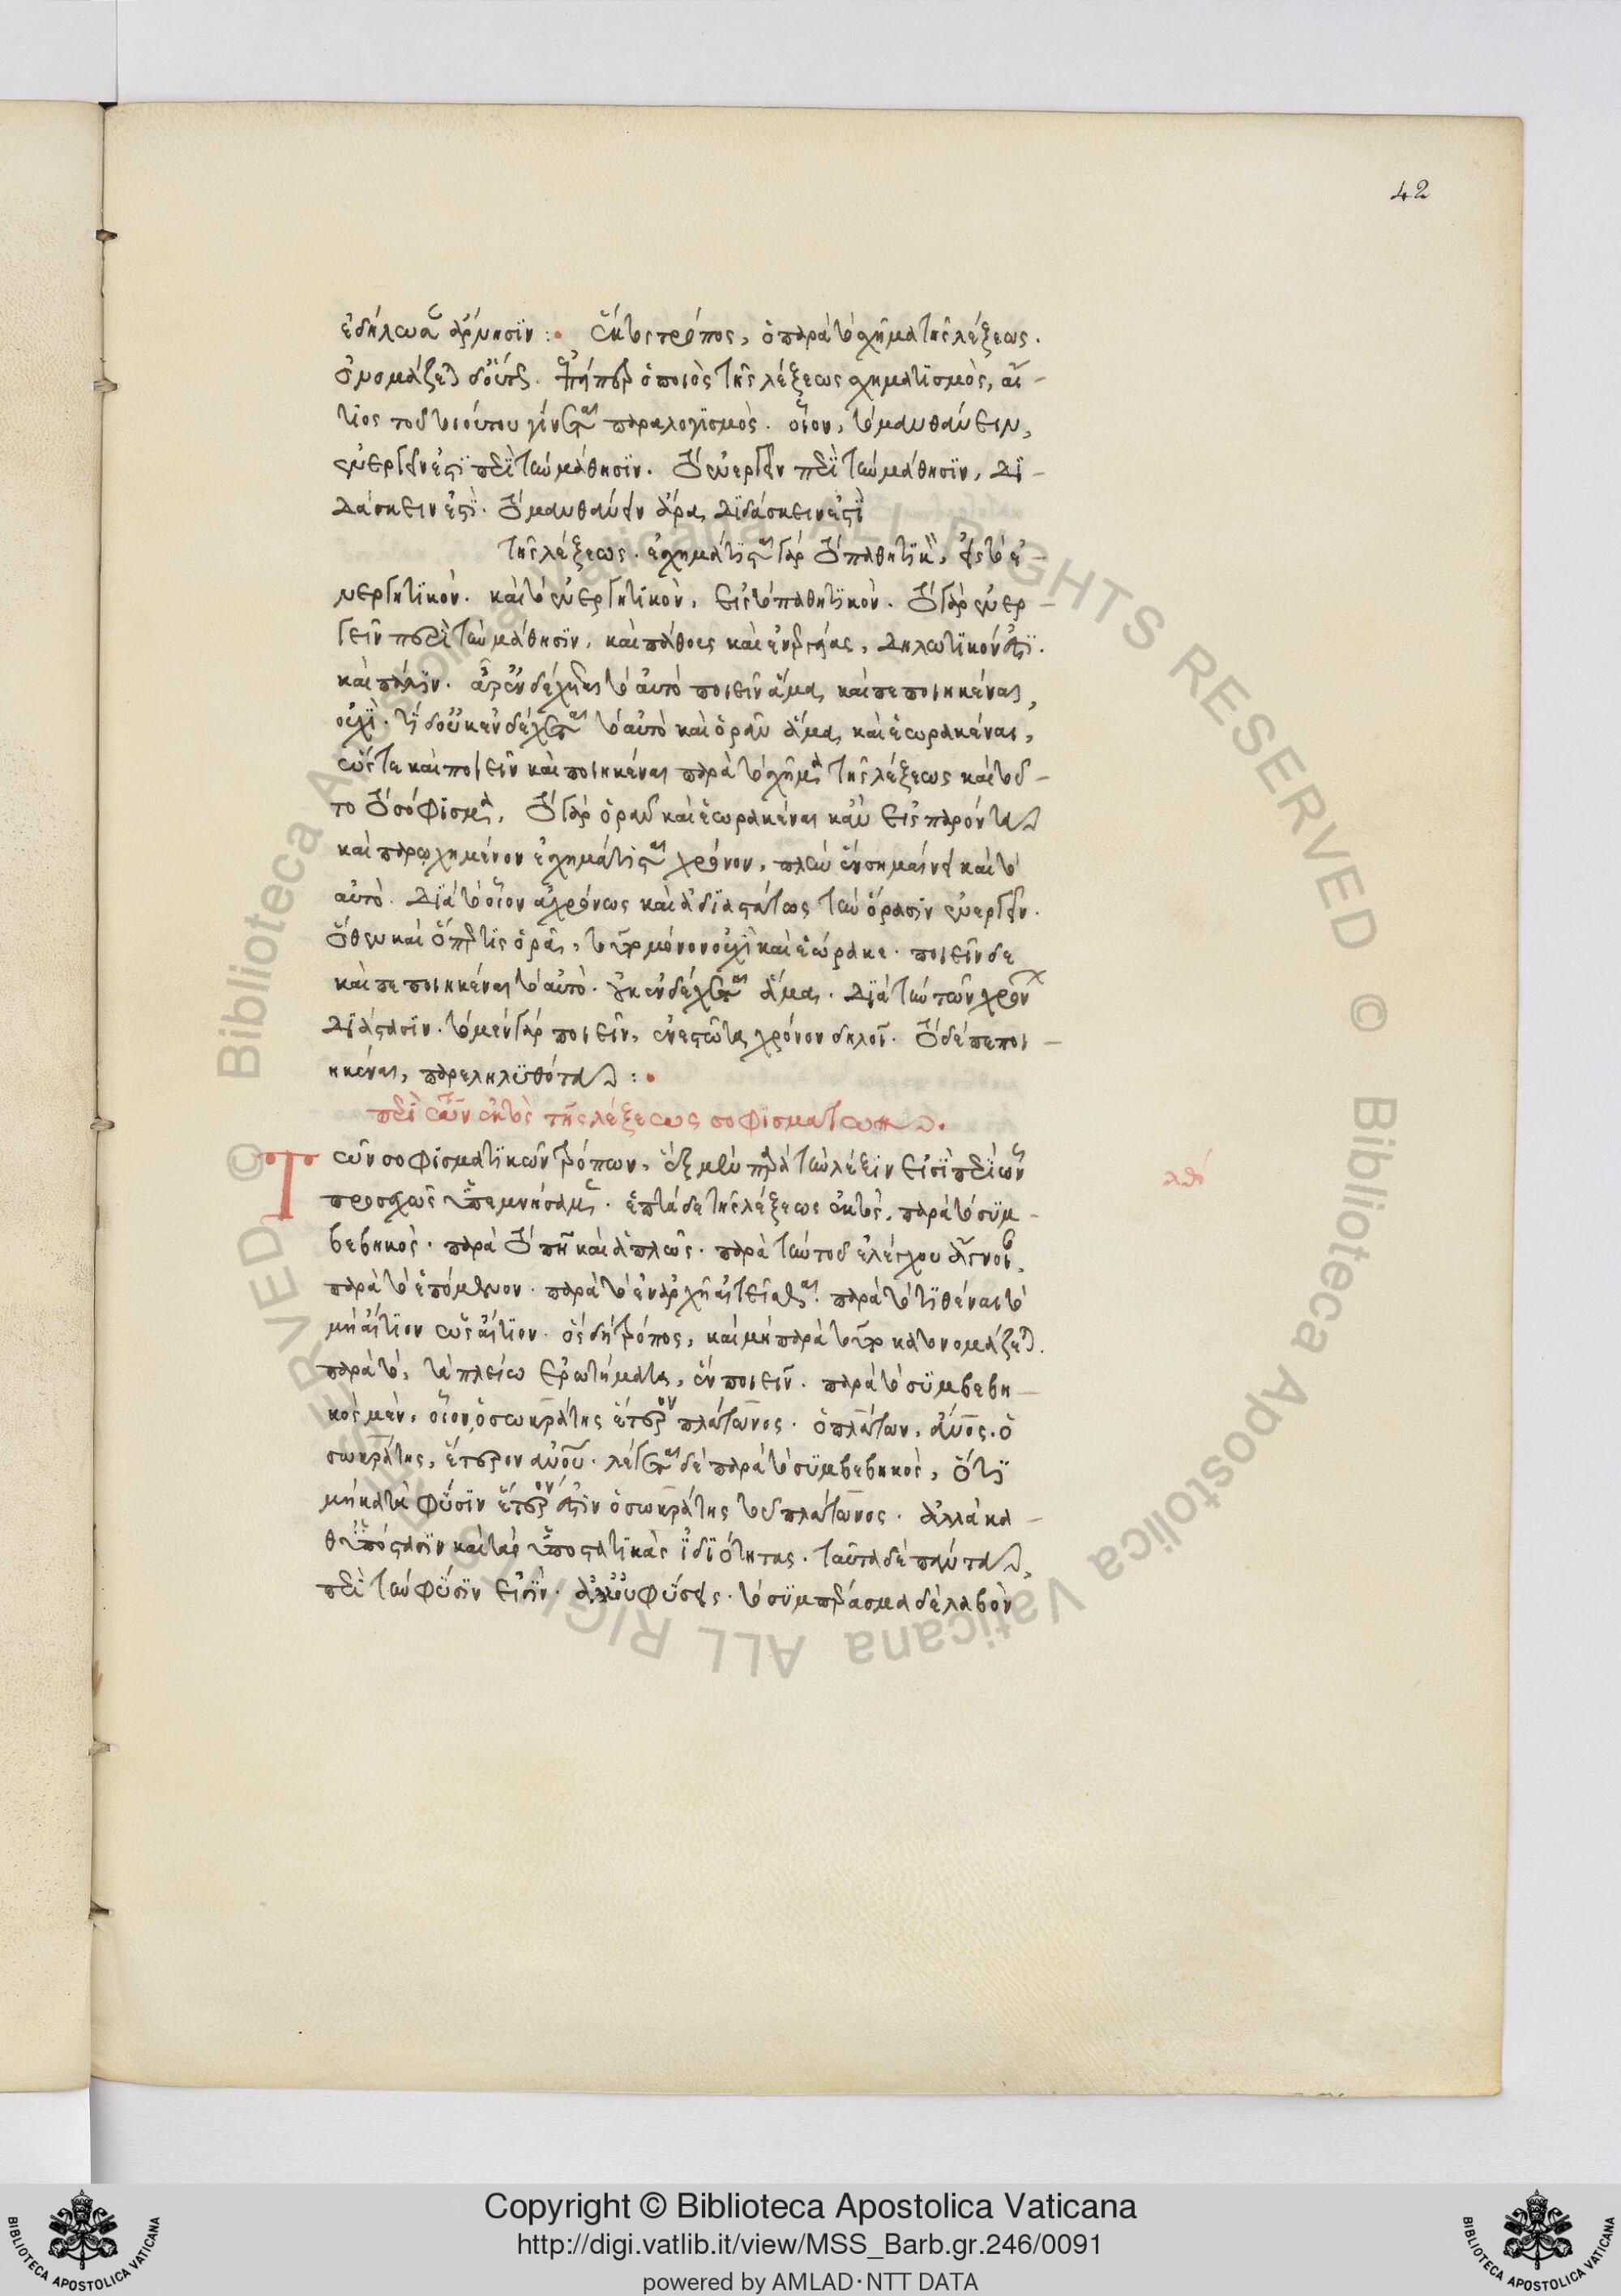 42
ἐδήλωσεν ἄρνησιν : ἕκτος τρόπος, ὁ παρὰ τὸ σχῆμα τῆς λέξεως.
ὀνομάζεται δὲ οὕτως. ἐπήπερ ὁ ποιὸς τῆς λέξεως σχηματισμὸς, αἴ-
τιος τοῦ τοιούτου γίνεται παραλογισμὸς. οἷον, τὸ μανθάνειν,
ἐνεργεῖν ἐστὶ περὶ τὴν μάθησιν. τὸ ἐνεργεῖν περὶ τὴν μάθησιν, δι-
δάσκειν ἐστὶ. τὸ μανθάνειν ἄρα, διδάσκειν ἐστὶ
τῆς λέξεως. ἐσχημάτισται γὰρ τὸ παθητικὸν, εἰς τὸ ἐ-
νεργητικὸν. καὶ τὸ ἐνεργητικὸν, εἰς τὸ παθητικὸν. τὸ γὰρ ἐνερ-
γεῖν περὶ τὴν μάθησιν, καὶ πάθους καὶ ἐνεργείας, δηλωτικόν ἐστι.
καὶ πάλιν. ἆρ' ἐνδέχεται τὸ αὐτὸ ποιεῖν ἅμα, καὶ πεποιηκέναι,
οὐχὶ. τί δ' οὐκ ἐνδέχεται τὸ αὐτὸ καὶ ὁρᾶν ἅμα, καὶ ἑωρακέναι,
ὥστε καὶ ποιεῖν καὶ ποιηκέναι παρὰ τὸ σχῆμα τῆς λέξεως καὶ τοῦ-
το τὸ σόφισμα. τὸ γὰρ ὁρᾶν καὶ ἑωρακέναι κἂν εἰς παρόντα
καὶ παρῳχημένον ἐσχημάτισται χρόνον, πλὴν ἓν σημαίνει καὶ τὸ
αὐτὸ. διὰ τὸ οἷον ἀχρόνως καὶ ἀδιαστάτως τὴν ὅρασιν ἐνεργεῖν.
ὅθεν καὶ ὅπερ τὶς ὁρᾷ, τοῦτο μόνον οὐχὶ καὶ ἑώρακε. ποιεῖν δε
καὶ πεποιηκέναι τὸ αὐτὸ. οὐκ ἐνδέχεται ἅμα. διὰ τὴν τῶν χρόνων
διάστασιν. τὸ μὲν γὰρ ποιεῖν, ἐνεστῶτα χρόνον δηλοῖ. τὸ δὲ πεποι-
ηκέναι, παρεληλυθότα :
περὶ τῶν ἐκτὸς τῆς λέξεως σοφισμάτων.
Τῶν σοφισματικῶν τρόπων, ἓξ μὲν παρὰ τὴν λέξιν εἰσὶ περὶ ὧν
προσεχῶς ὑπεμνήσαμεν. ἑπτὰ δὲ τῆς λέξεως ἐκτὸς. παρὰ τὸ συμ-
βεβηκὸς. παρὰ τὸ πῆ καὶ ἁπλῶς. παρὰ τὴν τοῦ ἐλέγχου ἄγνοιαν.
παρὰ τὸ ἑπόμενον. παρὰ τὸ ἐν ἀρχῇ αἰτεῖσθαι. παρὰ τὸ τιθέναι τὸ
μὴ αἴτιον ὡς αἴτιον. ὃς δὴ τρόπος, καὶ μὴ παρὰ τοῦτο κατονομάζεται.
παρὰ τὸ, τὰ πλείω ἐρωτήματα, ἓν ποιεῖν. παρὰ τὸ συμβεβη-
κὸς μὲν, οἷον, ὁ σωκράτης ἕτερον πλάτωνος. ὁ πλάτων, ἄνος. ὁ
σωκράτης, ἕτερον ἀνου. λέγεται δὲ παρὰ τὸ συμβεβηκὸς, ὅτι
μὴ κατὰ φύσιν ἕτερόν ἐστιν ὁ σωκράτης τοῦ πλάτωνος. ἀλλὰ κα-
θ' ὑπόστασιν καὶ τὰς ὑποστατικὰς ἰδιότητας. ταῦτα δὲ πάντα,
περὶ τὴν φύσιν εἰσὶν. ἀλλ' οὐ φύσεις. τὸ συμπέρασμα δὲ λαβὸν
Copyright © Biblioteca Apostolica Vaticana
http://digi.vatlib.it/view/MSS_Barb.gr.246/0091
powered by AMLAD·NTT DATA